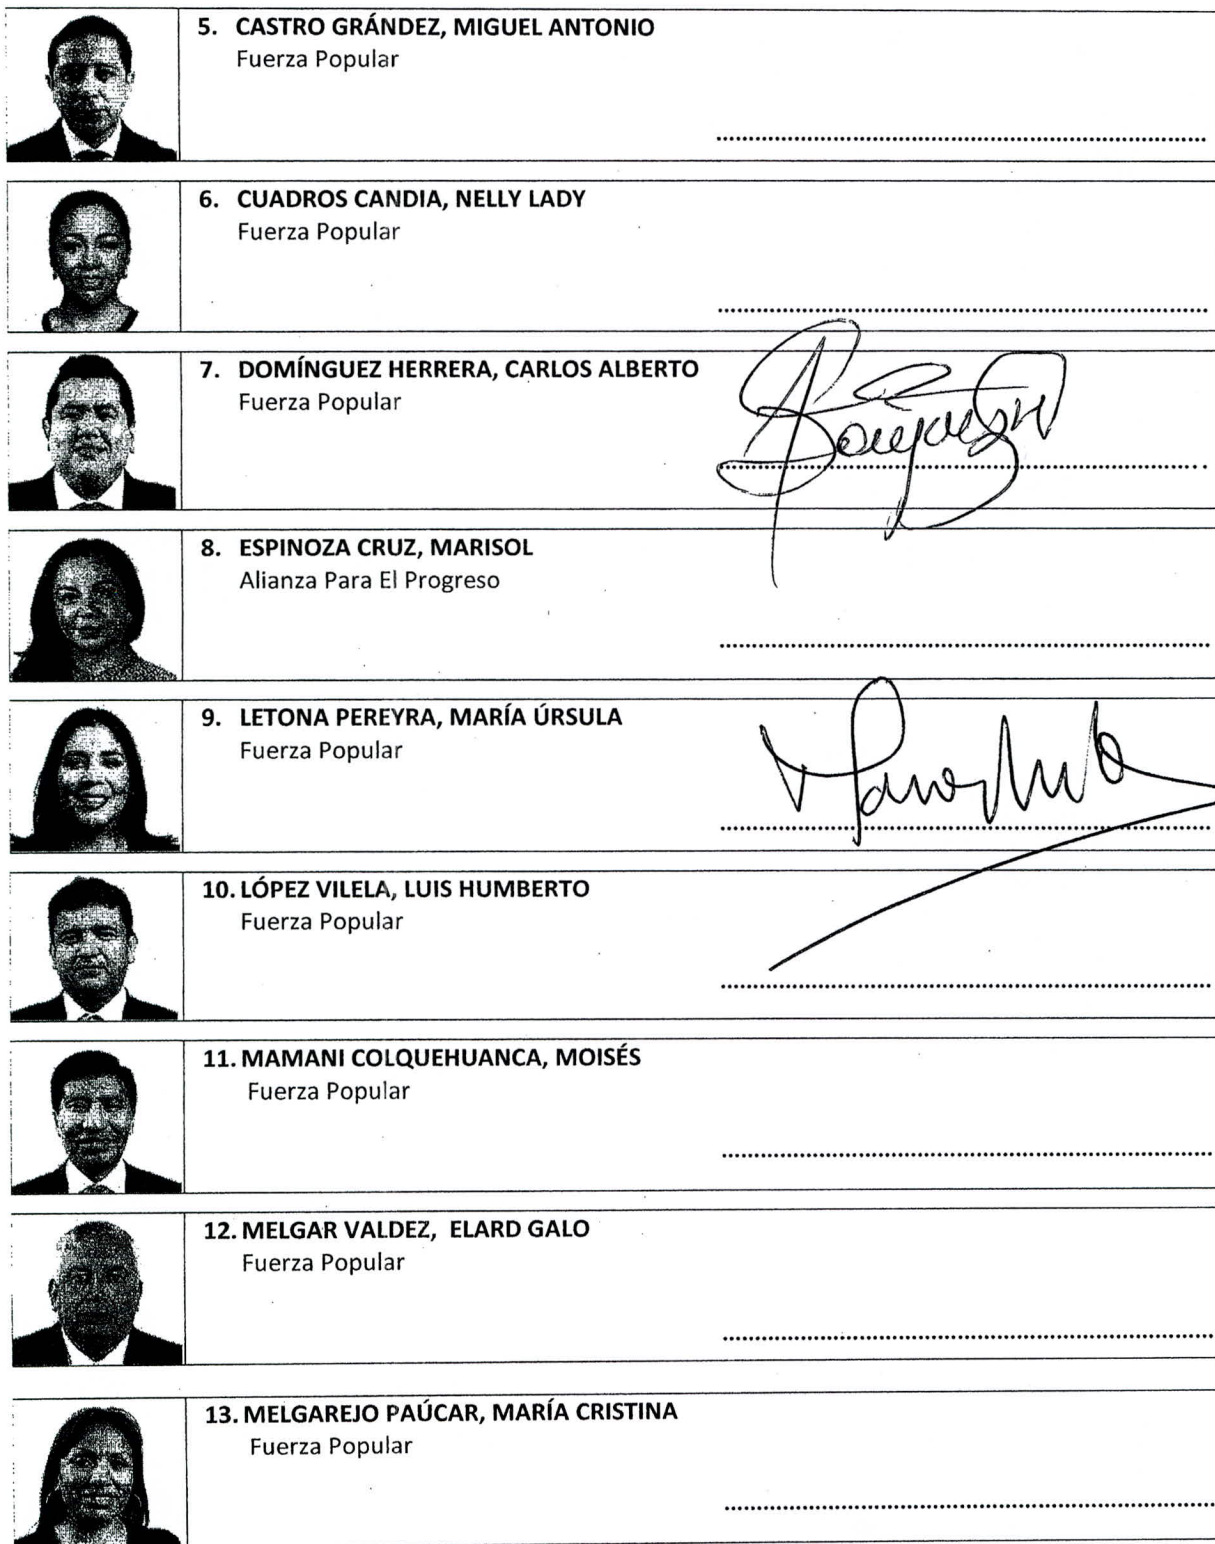 5. CASTRO GRÁNDEZ, MIGUEL ANTONIO
Fuerza Popular
6. CUADROS CANDIA, NELLY LADY
Fuerza Popular
7. DOMÍNGUEZ HERRERA, CARLOS ALBERTO
Fuerza Popular
8. ESPINOZA CRUZ, MARISOL
Alianza Para El Progreso
9. LETONA PEREYRA, MARÍA ÚRSULA
Fuerza Popular
10. LÓPEZ VILELA, LUIS HUMBERTO
Fuerza Popular
11. MAMANI COLQUEHUANCA, MOISÉS
Fuerza Popular
12. MELGAR VALDEZ, ELARD GALO
Fuerza Popular
13. MELGAREJO PAÚCAR, MARÍA CRISTINA
Fuerza Popular